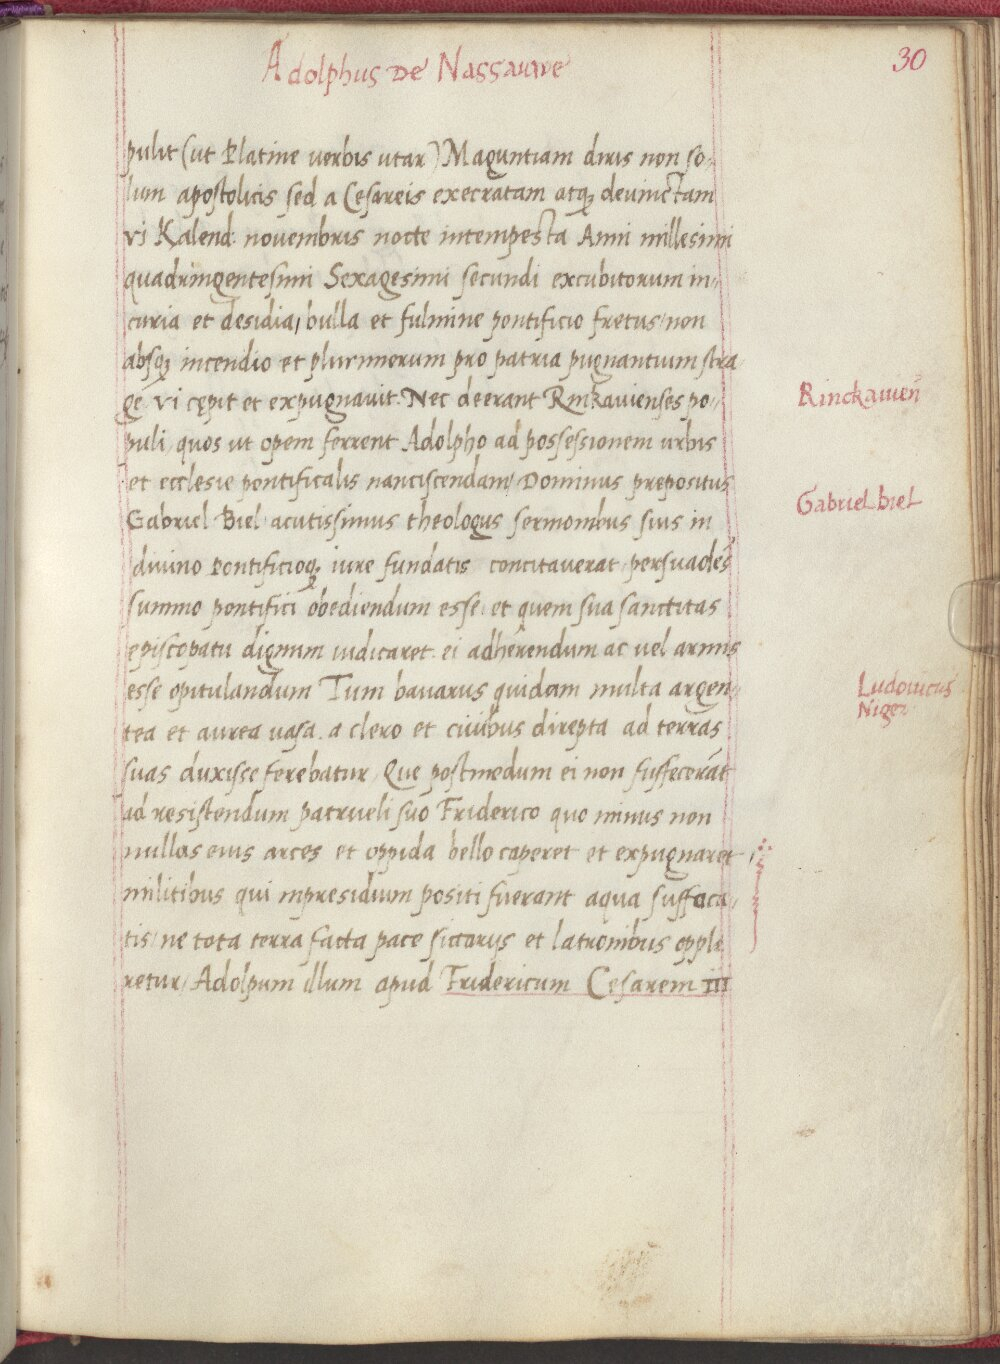 Adolphus de Nassauwe
30
pulit (ut Platine verbis utar) Maguntiam diris non so-
lum apostolicis sed a Cesareis execratam atq; devinctam
vi Kalend: novembris nocte intempesta Anni millesimi
quadringentesimi Sexagesimi secundi excubitorum in-
curia et desidia, bulla et fulmine pontificio fretus/ non
absq; incendio et plurimorum pro patria pugnantium stra-
ge vi cępit et expugnavit. Nec deerant Rinkavienses po-
puli/ quos ut opem ferrent Adolpho ad possessionem urbis
et ecclesie pontificalis nanciscendam/ Dominus prepositus
Gabriel Biel/ acutissimus theologus sermonibus suis in
divino pontificioq; iure fundatis concitaverat/ persuadēs
summo pontifici obediendum esse/ et quem sua sanctitas
episcopatu dignum iudicaret. ei adherendum ac vel armis
esse opitulandum Tum bavarus quidam multa argen-
tea et aurea vasa. a clero et civibus direpta ad terras
suas duxisse ferebatur/ Que postmodum ei non suffecerāt
ad resistendum patrueli suo Friderico quo minus non
nullas eius arces et oppida bello caperet et expugnaret/
militibus qui in presidium positi fuerant aqua suffoca-
tis/ ne tota terra facta pace siccarijs et latronibus opple
retur/ Adolpum illum apud Fridericum Cesarem III
Rinckauień
Gabriel biel
Ludouicus
Niger